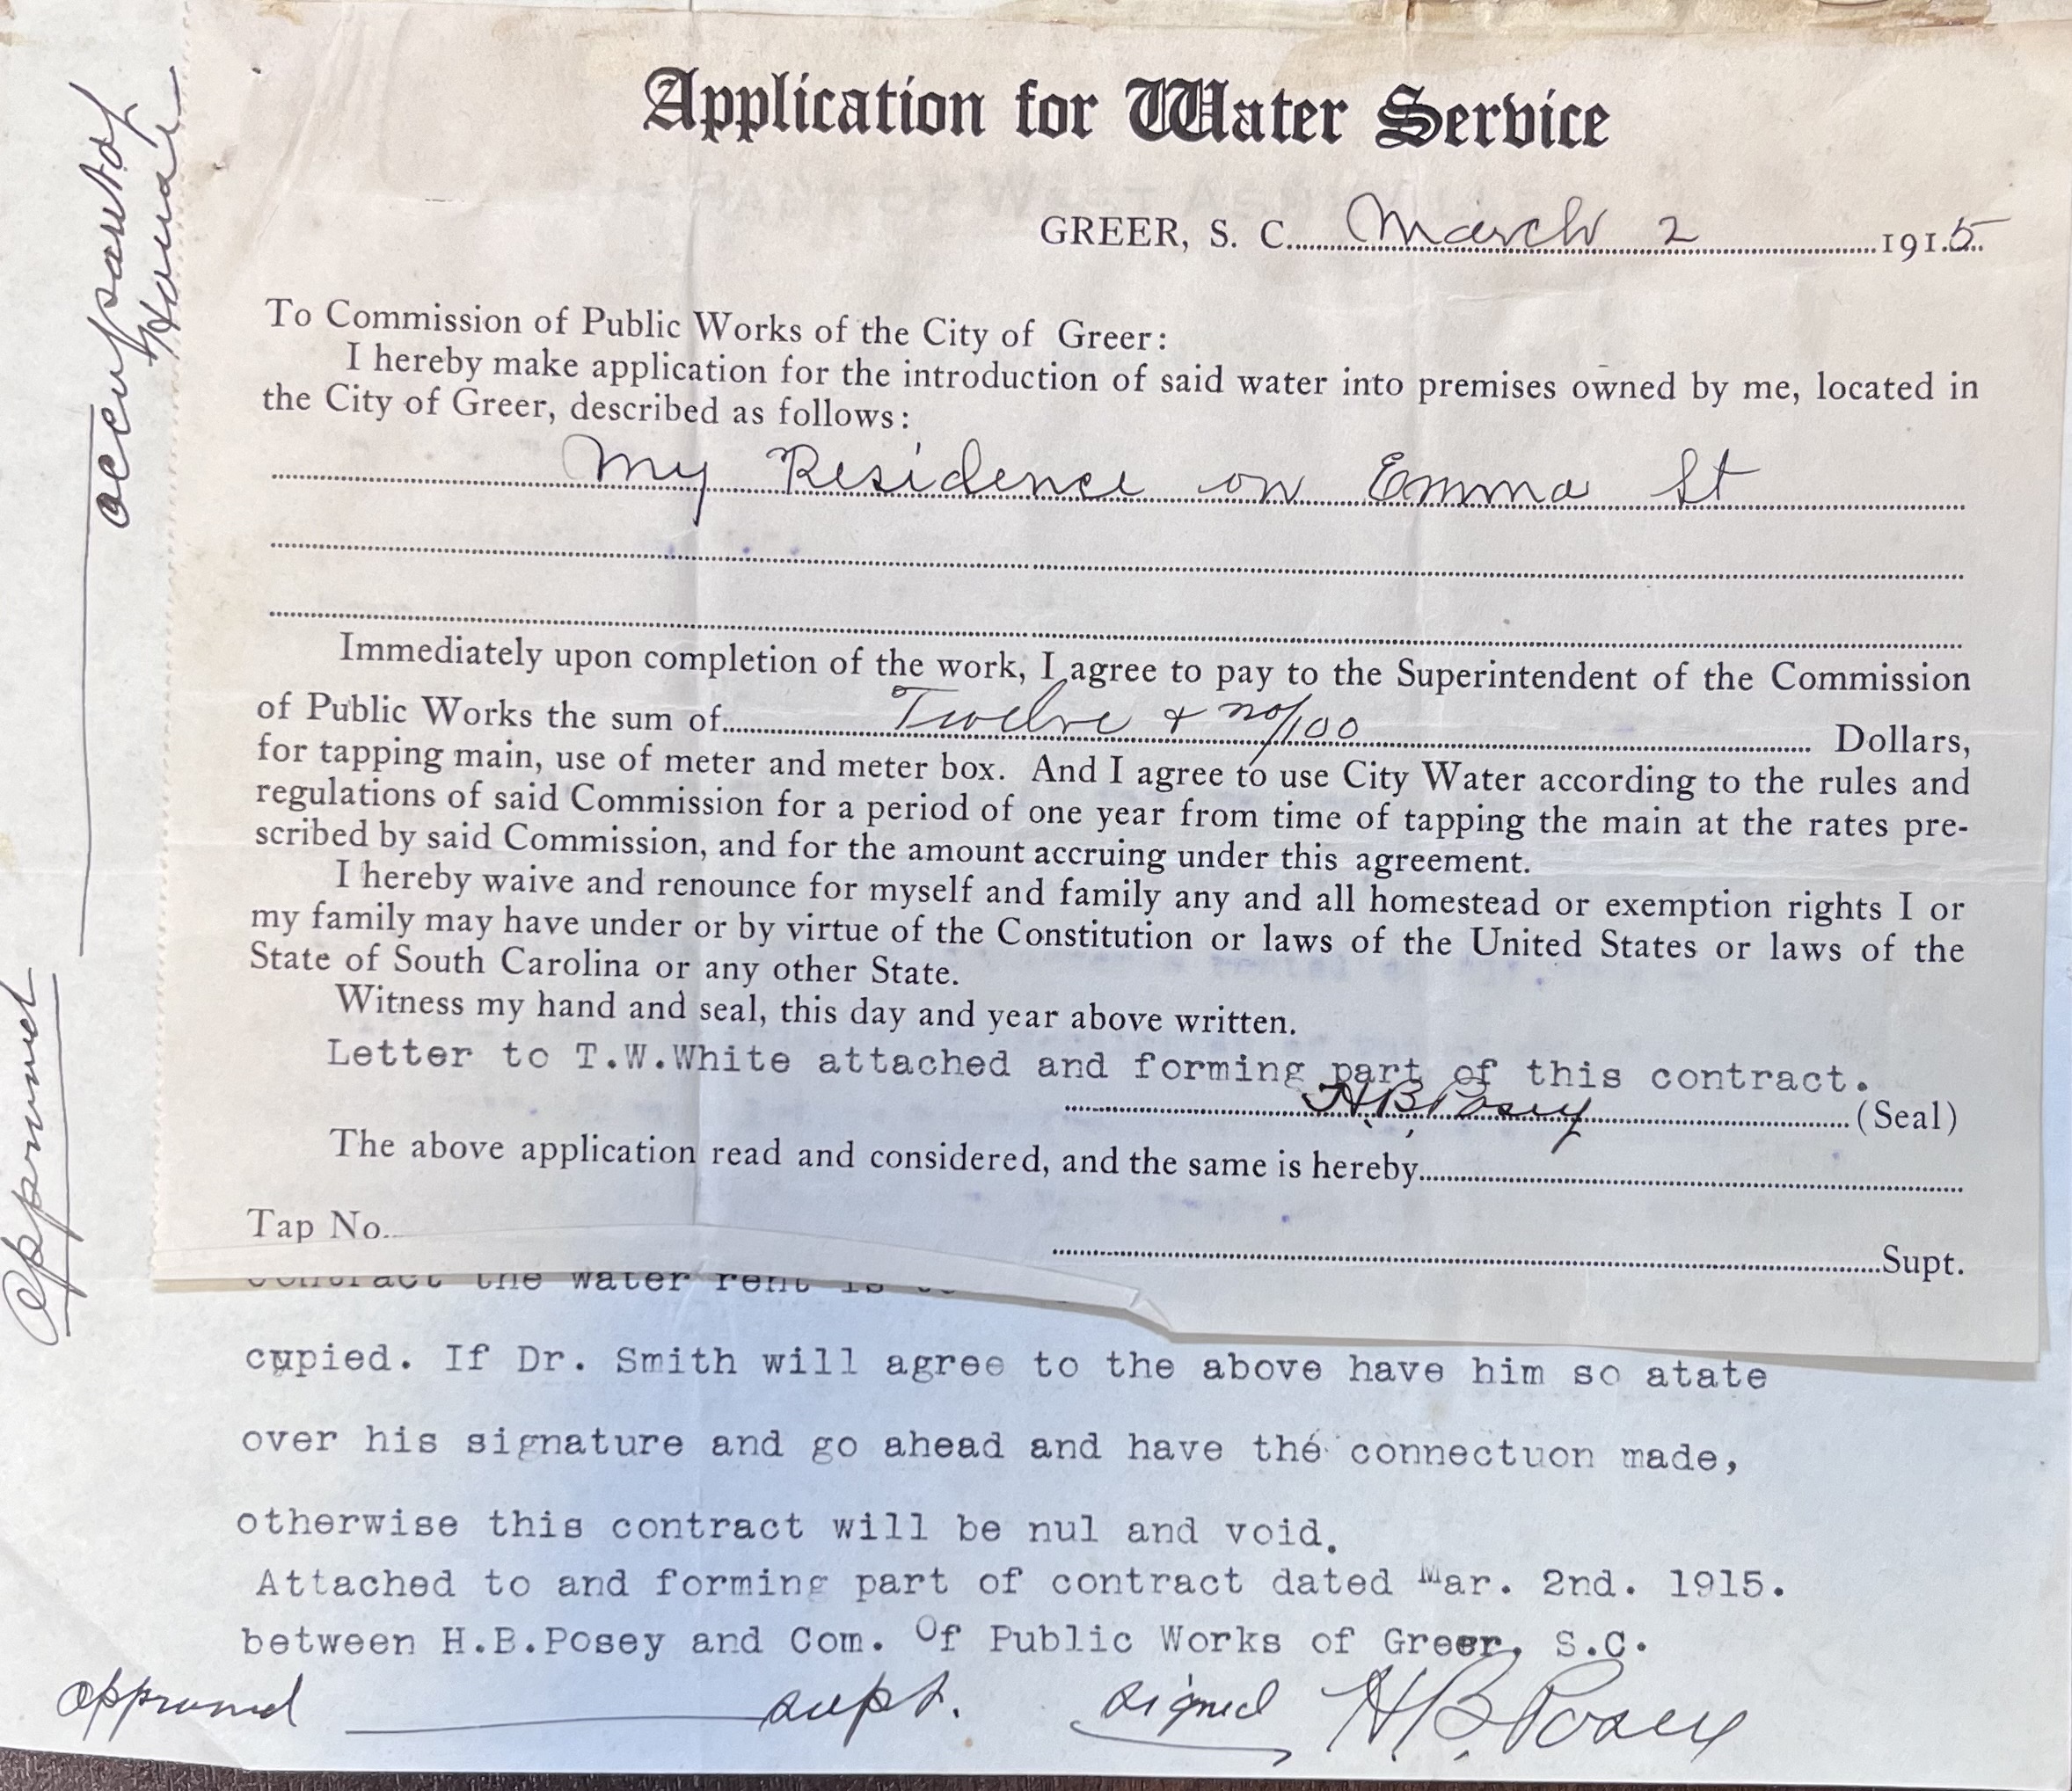 Application for Water Service
GREER, S. C. March 2 1915
To Commission of Public Works of the City of Greer:
I hereby make application for the introduction of said water into premises owned by me, located in
the City of Greer, described as follows:
My Residence on Emma St
Immediately upon completion of the work, I agree to pay to the Superintendent of the Commission
of Public Works the sum of Twelve & no/100 Dollars,
for tapping main, use of meter and meter box. And I agree to use City Water according to the rules and
regulations of said Commission for a period of one year from time of tapping the main at the rates pre-
scribed by said Commission, and for the amount accruing under this agreement.
I hereby waive and renounce for myself and family any and all homestead or exemption rights I or
my family may have under or by virtue of the Constitution or laws of the United States or laws of the
State of South Carolina or any other State.
Witness my hand and seal, this day and year above written.
Letter to T.W.White attached and forming part of this contract.
H.B.Posey (Seal)
The above application read and considered, and the same is hereby
Tap No.
Supt.
contract the water rent is
cupied. If Dr. Smith will agree to the above have him so atate
over his signature and go ahead and have the connectuon made,
otherwise this contract will be nul and void.
Attached to and forming part of contract dated Mar. 2nd. 1915.
between H.B.Posey and Com. Of Public Works of Greer, S.C.
approved supt. signed H.B.Posey
Approved
occupant of
House